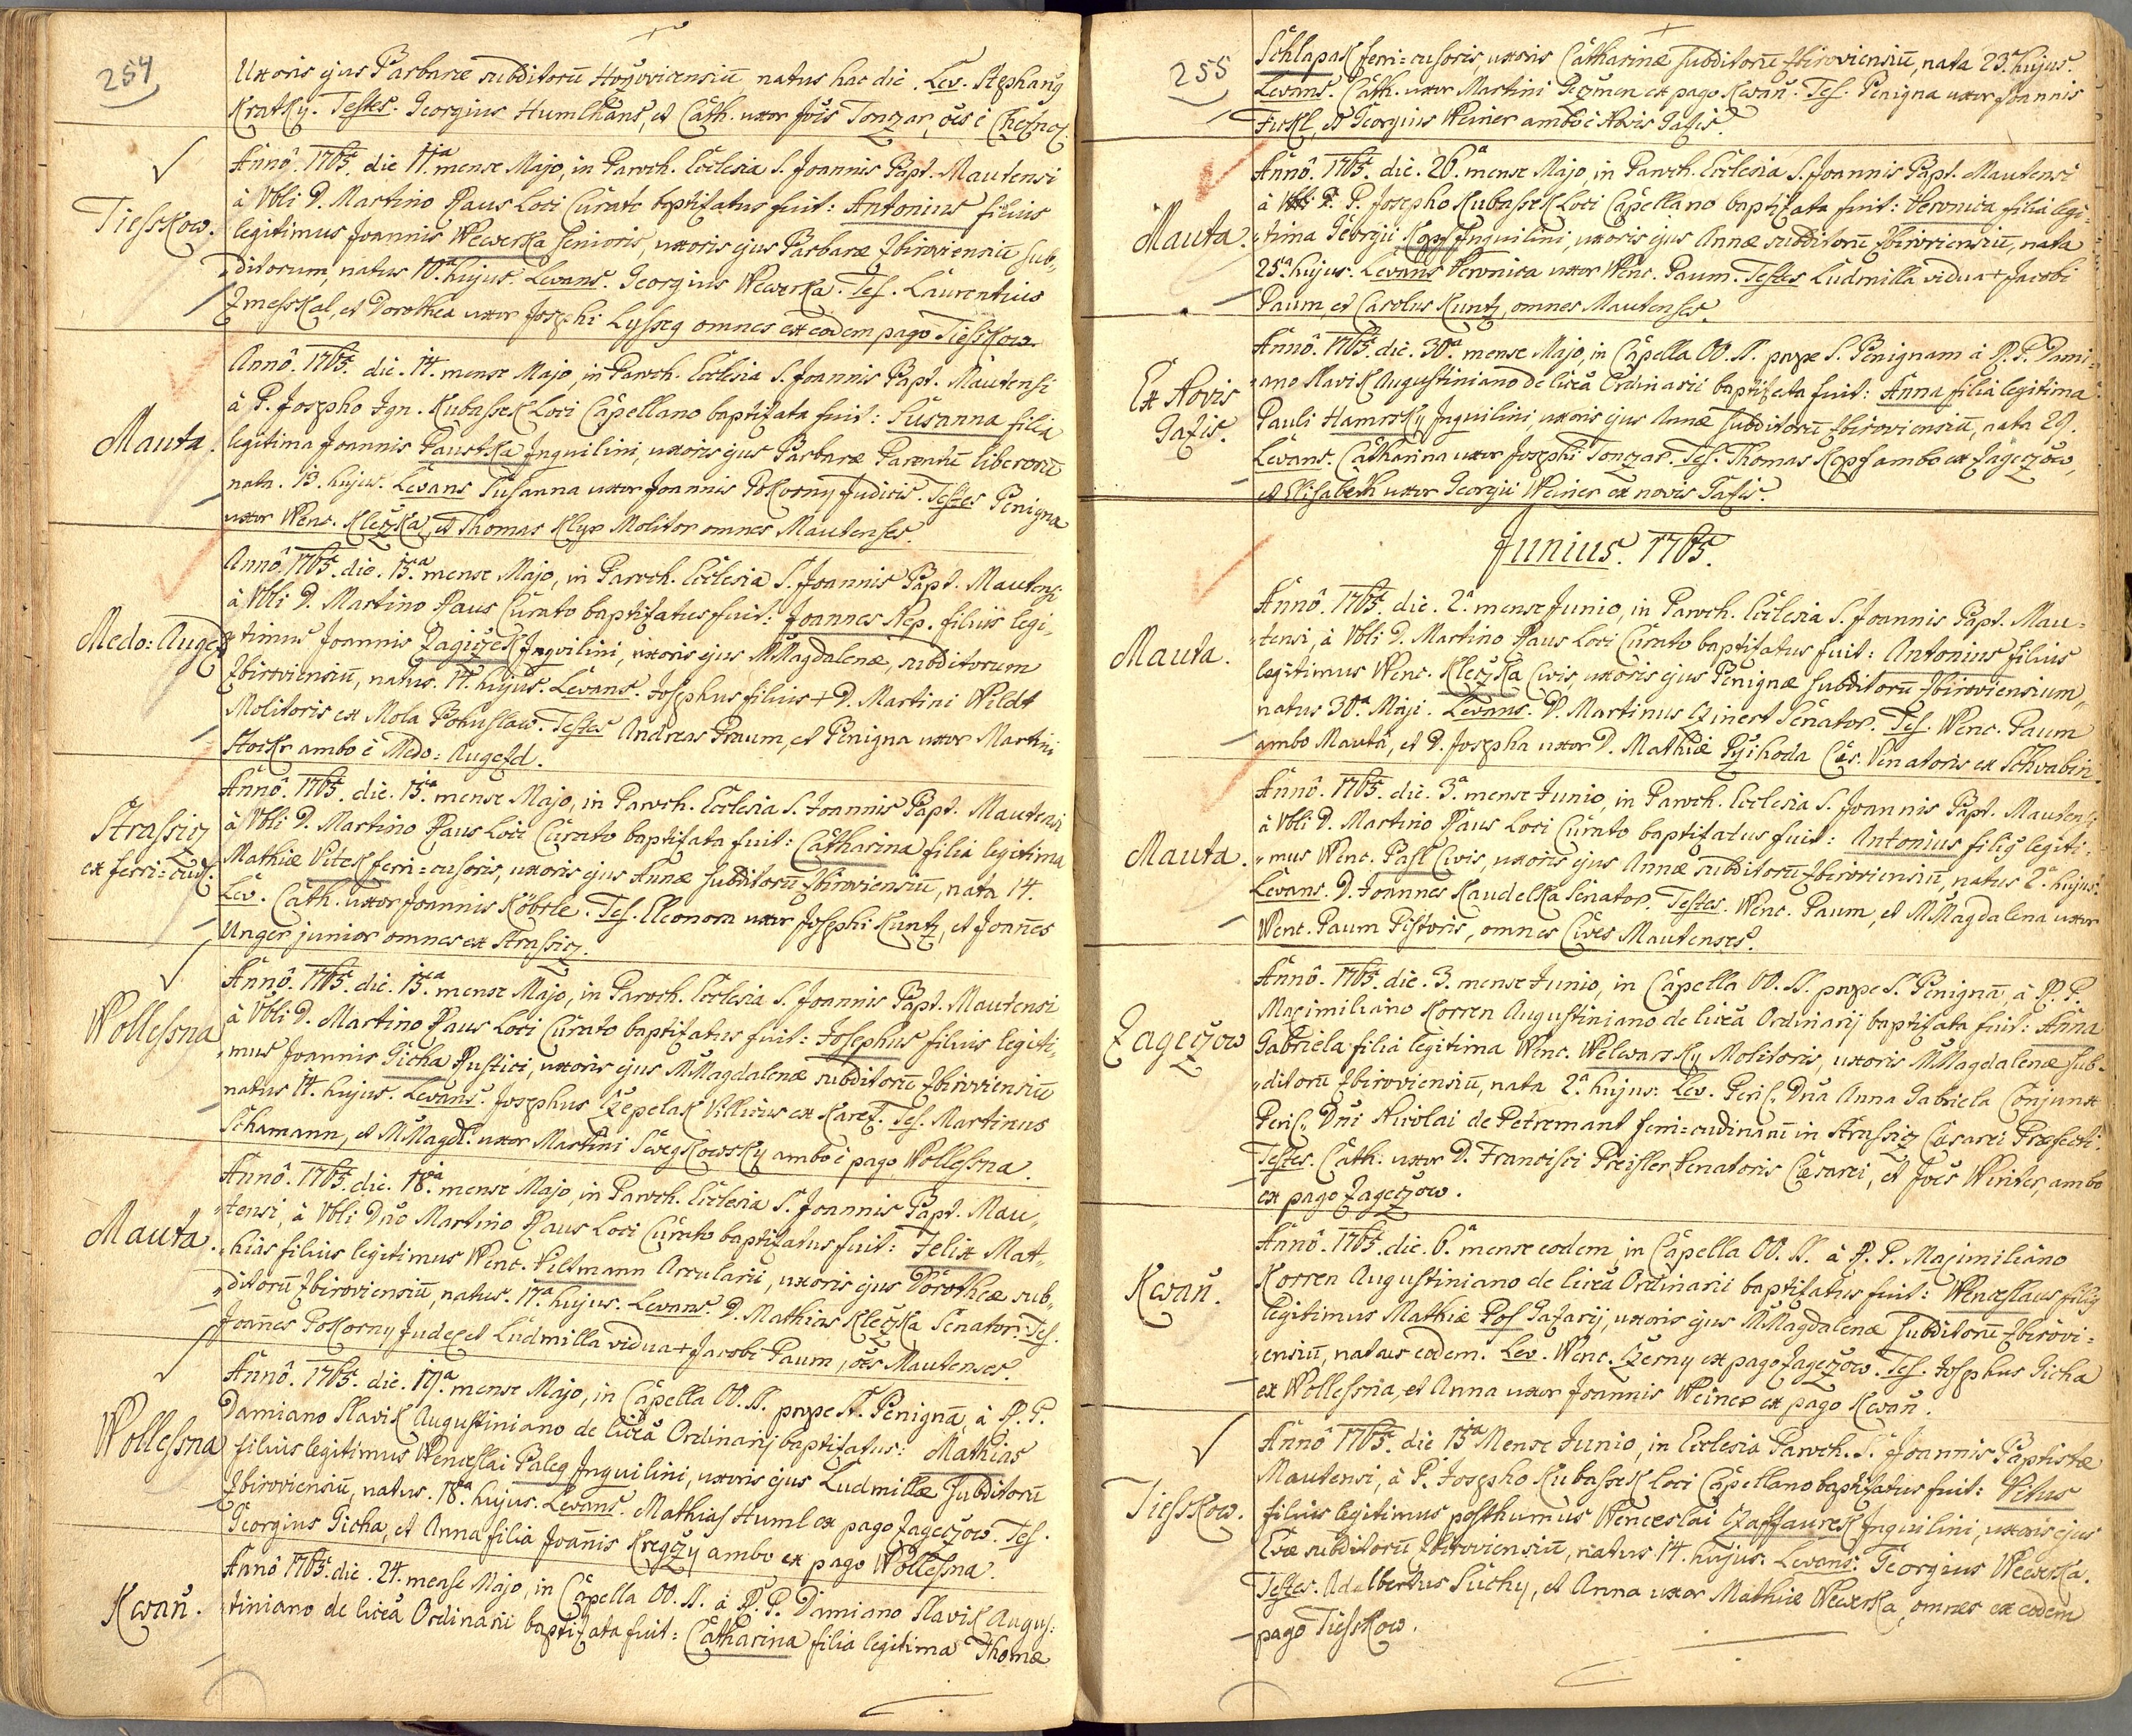 254
Uxoris ejus Barbaræ subditorū Hořzovicensiū natus hac die. Lev. Stephanꝰ
Kratky. Testes. Georgius Humlhans, et Cath. uxor Jois Tonczar, oēs è Chesnov.
Annô. 1765. die 11.ª mense Majo, in Paroch. Ecclesia S. Joannis Bapt. Mautensi
à Vbli D. Martino Raus Loci Curato baptisatus fuit: Antonius filius
Tiesskow. legitimus Joannis Wewerka senioris, uxoris ejus Barbaræ Zbirovensiū sub-
ditorum, natus 10.ª hujus. Levans. Georgius Wewerka. Tes. Laurentius
Zmesskal, et Dorothea uxor Josephi Lysseg omnes ex eodem pago Tiesskow.
Annô. 1765. die. 14. mense Majo, in Paroch. Ecclesia S. Joannis Bapt. Mautensi
à P. Josepho Ign. Kubassek Loci Capellano baptizata fuit: Susanna filia
Mauta. legitima Joannis Paustka Inquilini, uxoris ejus Barbaræ Parentū liberorū
nata. 13. hujus. Levans Susanna uxor Joannis Pokorny Judicis. Testes Benigna
uxor Wenc. Kleczka, et Thomas Klyx Molitor omnes Mautenses.
Annô. 1765. die. 15.ª mense Majo, in Paroch. Ecclesia S. Joannis Bapt. Mautensi
à Vbli D. Martino Raus Curato baptisatus fuit: Joannes Nep. filius legi-
Medo: Augezd timus Joannis Zagiczek Inquilini, uxoris ejus M Magdalenæ, subditorum
Zbiroviensiū, natus. 14. hujus. Levans. Josephus filius + D. Martini Wildt
Molitoris ex Mola Bohuslaw. Testes Andreas Praum, et Benigna uxor Martini
Stockr ambo è Medo: Augezd.
Annô. 1765. die. 15.ª mense Majo, in Paroch. Ecclesia S. Joannis Bapt. Mautensi
Strassicz à Vbli D. Martino Raus Loci Curato baptisata fuit: Catharina filia legitima
ex ferri=cud. Mathiæ Vitek ferri=cusoris, uxoris ejus Annæ subditorū Zbiroviensiū, nata 14.
Lev. Cath. uxor Joannis Köbrle. Tes. Eleonora uxor Josephi Kuntz, et Joanes
Unger junior omnes ex Strassicz.
Annô. 1765. die. 15.ª mense Majo, in Paroch. Ecclesia S. Joannis Bapt. Mautensi
Wollessna à Vbli D. Martino Raus Loci Curato baptisatus fuit: Josephus filius legiti-
mus Joannis Gicha Rustici, uxoris ejus M Magdalenæ subditorū Zbiroviensiū
natus 14. hujus. Levans. Josephus Czepelak Villicus ex Karez. Tes. Martinus
Schamann, et M Magdl. uxor Martini Swegkowsky ambo è pago Wollessna.
Annô. 1765. die. 18.ª mense Majo, in Paroch. Ecclesia S. Joannis Bapt. Mau-
tensi, à Vbli Dno Martino Raus Loci Curato baptisatus fuit: Felix Mat-
Mauta. hias filius legitimus Wenc. Victmann Arcularii, uxoris ejus Dorotheæ sub-
ditorū Zbiroviensiū, natus. 17.ª hujus. Levans. D. Mathias Kleczka Senator. Tes.
Joanes Pokorny Judex et Ludmilla vidua + Jacobi Paum, oēs Mautenses.
Annô. 1765. die. 19.ª mense Majo, in Capella OO. SS. prope S. Benignā à R. P.
Damiano Slavik Augustiniano de liceā Ordinarij baptisatus: Mathias
Wollessna filius legitimus Wenceslai Paleg Inquilini, uxoris ejus Ludmillæ subditorū
Zbiroviensiū, natus. 18.ª hujus. Levans. Mathias Huml ex pago Jageczow. Tes.
Georgius Gicha, et Anna filia Joānis Kregczy ambo ex pago Wollessna.
Annô 1765. die. 24. mense Majo, in Capella OO. SS. à R. P. Damiano Slavik Augus-
Kwaň. tiniano de liceā Ordinarii baptizata fuit: Catharina filia legitima Thomæ
255
Schlapak ferri=cusoris, uxoris Catharinæ subditorū Zbiroviensiū, nata 23. hujus.
Levans. Cath. uxor Martini Peczmen ex pago Kwaň. Tes. Benigna uxor Joannis
Fickl, et Georgius Weiner ambo è Novis Gazis.
Annô. 1765. die. 26.ª mense Majo, in Paroch. Ecclesia S. Joannis Bapt. Mautensi
à P. Josepho Kubassek Loci Capellano baptizata fuit: Veronica filia legi-
Mauta. tima Georgii Kopf Inquilini, uxoris ejus Annæ subditorū Zbiroviensiū, nata
25.ª hujus. Levans Veronica uxor Wenc. Paum. Testes Ludmilla vidua + Jacobi
Paum, et Carolus Kuntz, omnes Mautenses.
Annô. 1765. die. 30.ª mense Majo, in Capella OO. SS. prope S. Benignam à R. P. Dami-
Ex Novis ano Slavik Augustiniano de liceā Ordinarii baptizata fuit: Anna filia legitima
Gazis. Pauli Hamrsky Inquilini, uxoris ejus Annæ subditorū Zbiroviensiū, nata 29.
Levans. Catharina uxor Josephi Tonczar. Tes. Thomas Kopf ambo ex Jageczow,
et Elisabeth uxor Georgii Weiner ex novis Gazis.
Junius. 1765.
Annô. 1765. die. 2.ª mense Junio, in Paroch. Ecclesia S. Joannis Bapt. Mau-
Mauta. tensi, à Vbli D. Martino Raus Loci Curato baptisatus fuit: Antonius filius
legitimus Wenc. Kleczka Civis, uxoris ejus Benignæ subditorū Zbiroviensium,
natus 30.ª Maji. Levans. D. Martinus Czinert Senator. Tes. Wenc. Paum
ambo Mautâ, et D. Josepha uxor D. Mathiæ Pržihoda Cæs. Venatoris ex Schvabin.
Annô. 1765. die. 3.ª mense Junio, in Paroch. Ecclesia S. Joannis Bapt. Mautensi
à Vbli D. Martino Raus Loci Curato baptisatus fuit: Antonius filiꝰ legiti-
Mauta. mus Wenc. Pasl Civis, uxoris ejus Annæ subditorū Zbiroviensiū, natus 2.ª hujus.
Levans. D. Joannes Kaudelka Senator. Testes. Wenc. Paum, et M Magdalena uxor
Wenc. Paum Pistoris, omnes Cives Mautenses.
Annô. 1765. die. 3. mense Junio, in Capella OO. SS. prope S. Benignā, à R. P.
Maximiliano Korren Augustiniano de liceā Ordinarij baptisata fuit: Anna
Zageczow Gabriela filia legitima Wenc. Welwarsky Molitoris, uxoris M Magdalenæ sub-
ditorū Zbiroviensiū, nata 2.ª hujus. Lev. Peril. Dna Anna Gabriela Conjunx
Peril. Dni Nicolai de Petremant ferri=cudinarū in Strassicz Cæsarei Præfecti.
Testes. Cath. uxor D. Francisci Preisler Venatoris Cæsarei, et Joēs Winter, ambo
ex pago Zageczow.
Annô. 1765. die. 6.ª mense eodem, in Capella OO. SS. à R. P. Maximiliano
Kwaň. Korren Augustiniano de liceā Ordinarii baptisatus fuit: Wenceslaus filiꝰ
legitimus Mathiæ Pos Gazarij, uxoris ejus M Magdalenæ subditorū Zbirovi-
ensiū, natus eodem. Lev. Wenc. Czerny ex pago Jageczow. Tes. Josephus Gicha
ex Wollessna, et Anna uxor Joannis Weiner ex pago Kwaň.
Annô 1765. die 15.ª Mense Junio, in Ecclesia Paroch. S. Joannis Baptistæ
Mautensi, à P. Josepho Kubassek Loci Capellano baptisatus fuit: Vitus
Tiesskow. filius legitimus posthumus Wenceslai Czaffaurek Inquilini, uxoris ejus
Evæ subditorū Zbiroviensiū, natus 14. hujus. Levans. Georgius Wewerka.
Testes. Adalbertus Suchy, et Anna uxor Mathiæ Wewerka, omnes ex eodem
pago Tiesskow.